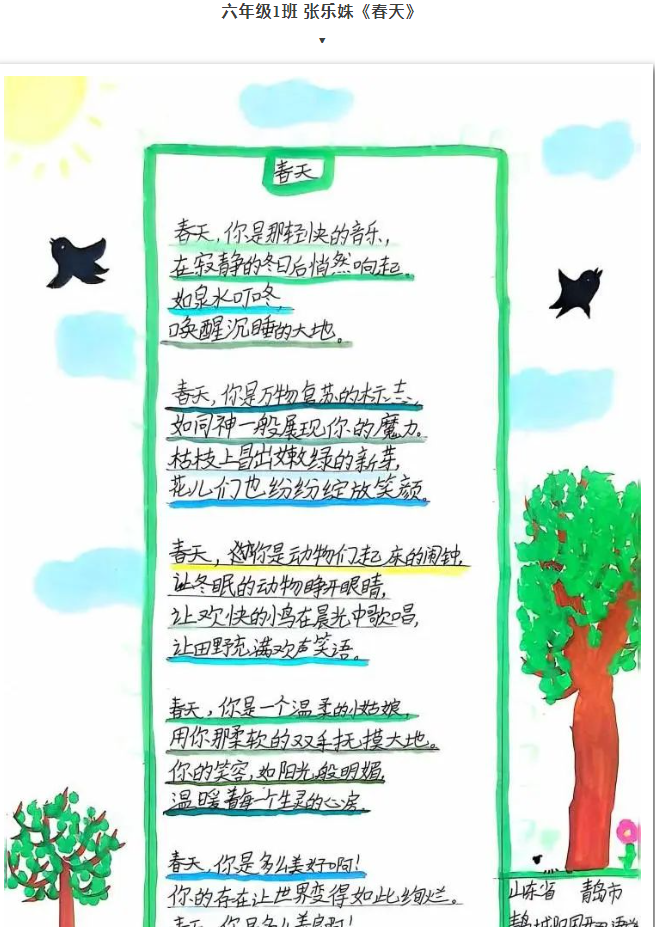 六年级1班 张乐姝《春天》
春天
春天,你是那轻快的音乐,
在寂静的冬日后悄然响起。
如泉水叮咚,
唤醒沉睡的大地。
春天,你是万物复苏的标志,
如同神一般展现你的魔力。
枯枝上冒出嫩绿的新芽,
花儿们也纷纷绽放笑颜。
春天,你是动物们起床的闹钟,
让冬眠的动物睁开眼睛,
让欢快的小鸟在晨光中歌唱,
让田野充满欢声笑语。
春天,你是一个温柔的小姑娘,
用你那柔软的双手抚摸大地。
你的笑容,如阳光般明媚,
温暖着每一个生灵的心房。
春天,你是多么美好啊!
你的存在让世界变得如此绚烂。
山东省 青岛市